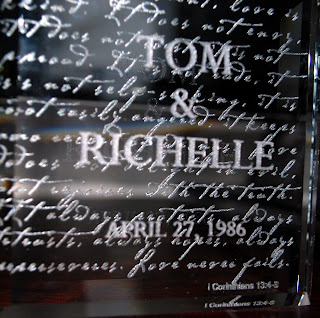 love is
does not
TOM
proud. It is not
is not self-seeking, it is
not easily angered, it keeps
&
RICHELLE
does not delight in evil
but rejoices with the truth.
It always protects, always
APRIL 27, 1986
trusts, always hopes, always
perseveres. Love never fails.
I Corinthians 13:4-8
I Corinthians 13:4-8